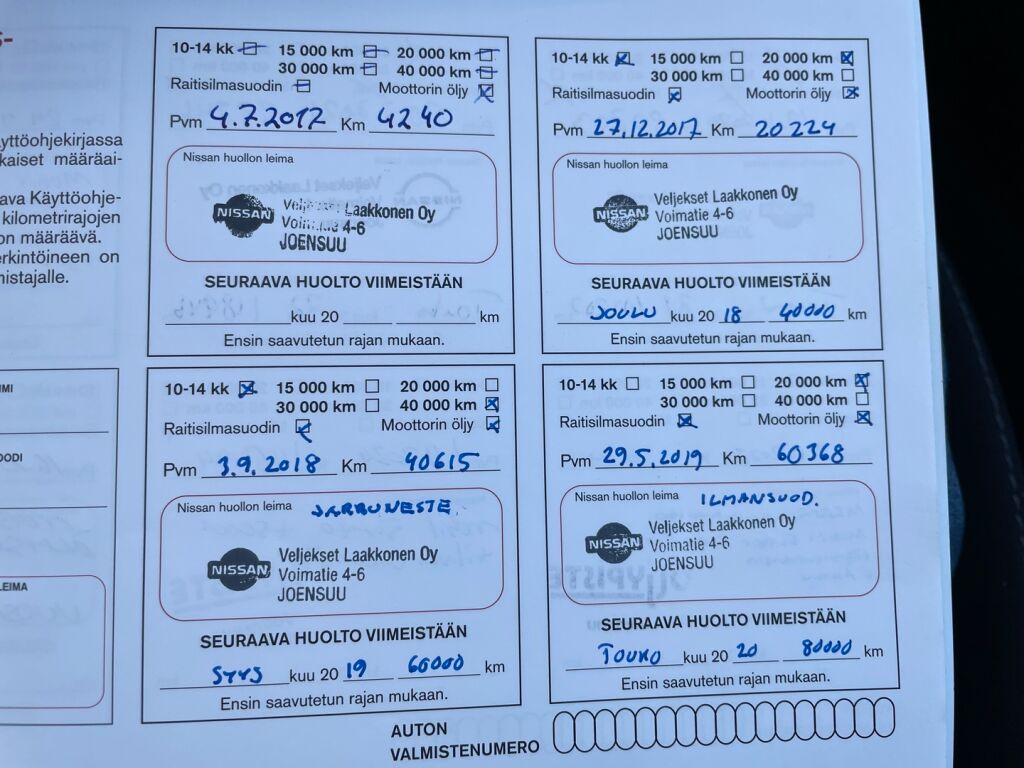 s-
yttöohjekirjassa
kaiset määräai-
ava Käyttöohje-
kilometrirajojen
on määräävä.
erkintöineen on
mistajalle.
IMI
OODI
LEIMA
10-14 kk 15 000 km 20 000 km
30 000 km 40 000 km
Raitisilmasuodin Moottorin öljy
Pvm 4.7.2017 Km 4240
Nissan huollon leima
NISSAN
Veljekset Laakkonen Oy
Voimatie 4-6
JOENSUU
SEURAAVA HUOLTO VIIMEISTÄÄN
kuu 20 km
Ensin saavutetun rajan mukaan.
10-14 kk 15 000 km 20 000 km
30 000 km 40 000 km
Raitisilmasuodin Moottorin öljy
Pvm 27.12.2017 Km 20224
Nissan huollon leima
NISSAN
Veljekset Laakkonen Oy
Voimatie 4-6
JOENSUU
SEURAAVA HUOLTO VIIMEISTÄÄN
JOULU kuu 20 18 40000 km
Ensin saavutetun rajan mukaan.
10-14 kk 15 000 km 20 000 km
30 000 km 40 000 km
Raitisilmasuodin Moottorin öljy
Pvm 3.9.2018 Km 40615
Nissan huollon leima JARRUNESTE
NISSAN
Veljekset Laakkonen Oy
Voimatie 4-6
JOENSUU
SEURAAVA HUOLTO VIIMEISTÄÄN
SYYS kuu 20 19 60000 km
Ensin saavutetun rajan mukaan.
10-14 kk 15 000 km 20 000 km
30 000 km 40 000 km
Raitisilmasuodin Moottorin öljy
Pvm 29.5.2019 Km 60368
Nissan huollon leima ILMANSUOD.
NISSAN
Veljekset Laakkonen Oy
Voimatie 4-6
JOENSUU
SEURAAVA HUOLTO VIIMEISTÄÄN
TOUKO kuu 20 20 80000 km
Ensin saavutetun rajan mukaan.
AUTON
VALMISTENUMERO